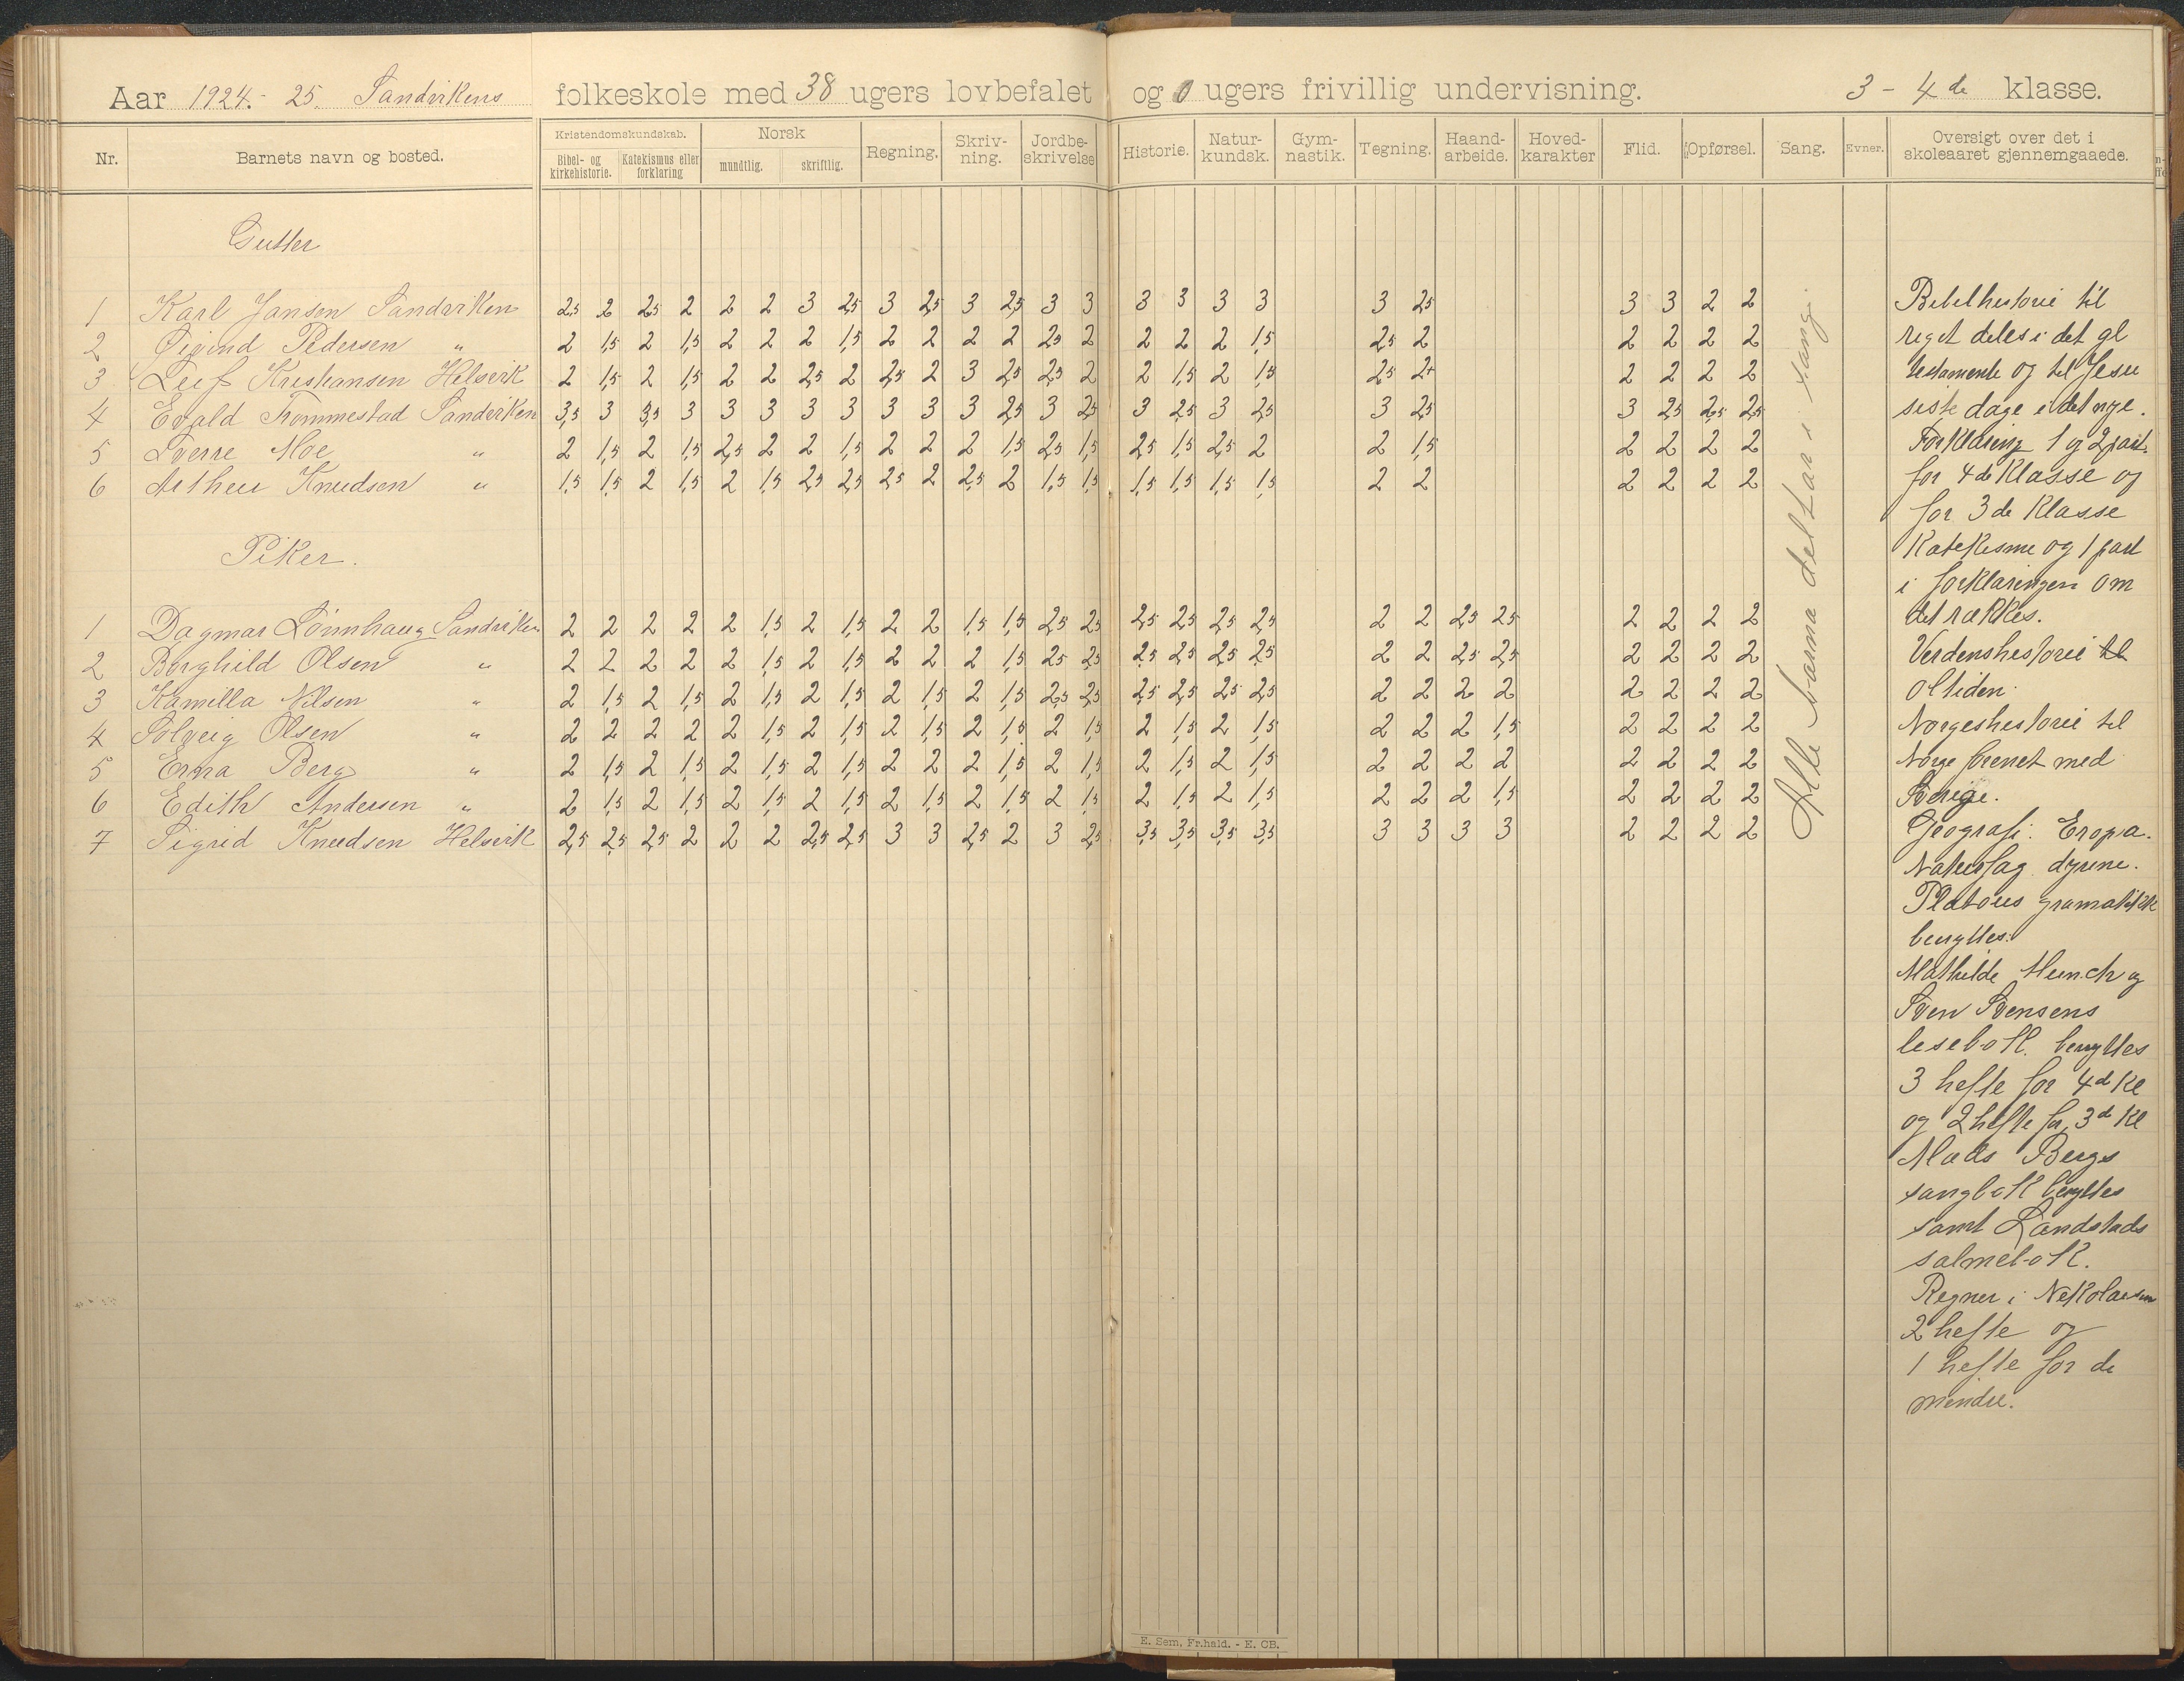 Aar 1924.- 25. Sandvikens folkeskole med 38 ugers lovbefalet og 0 ugers frivillig undervisning. 3 - 4de klasse.
Nr. Barnets navn og bosted. Kristendomskundskab. Norsk Regning. Skriv-ning. Jordbe-skrivelse Historie. Natur-kundsk. Gym-nastik. Tegning. Haand-arbeide. Hoved-karakter Flid. Opførsel. Sang. Evner. Oversigt over det i skoleaaret gjennemgaaede.
Bibel- og kirkehistorie. Katekismus eller forklaring mundtlig. skriftlig.
Gutter
1 Karl Jansen Sandviken 2,5 2 2,5 2 2 2 3 2,5 3 2,5 3 2,5 3 3 3 3 3 3 3 2,5 3 3 2 2
2 Øivind Pedersen " 2 1,5 2 1,5 2 2 2 1,5 2 2 2 2 2,5 2 2 2 2 1,5 2,5 2 2 2 2 2
3 Leif Kristiansen Helsvik 2 1,5 2 1,5 2 2 2,5 2 2,5 2 3 2,5 2,5 2 2 1,5 2 1,5 2,5 2+ 2 2 2 2
4 Evald Trommestad Sandviken 3,5 3 3,5 3 3 3 3 3 3 3 3 2,5 3 2,5 3 2,5 3 2,5 3 2,5 3 2,5 2,5 2,5
5 Sverre Moe " 2 1,5 2 1,5 2,5 2 2 1,5 2 2 2 1,5 2,5 1,5 2,5 1,5 2,5 2 2 1,5 2 2 2 2
6 Arthur Knudsen " 1,5 1,5 2 1,5 2 1,5 2,5 2,5 2,5 2 2,5 2 1,5 1,5 1,5 1,5 1,5 1,5 2 2 2 2 2 2
Piker.
1 Dagmar Lønnhaug Sandviken 2 2 2 2 2 1,5 2 1,5 2 2 1,5 1,5 2,5 2,5 2,5 2,5 2,5 2,5 2 2 2,5 2,5 2 2 2 2
2 Borghild Olsen " 2 2 2 2 2 1,5 2 1,5 2 2 2 1,5 2,5 2,5 2,5 2,5 2,5 2,5 2 2 2,5 2,5 2 2 2 2
3 Kamilla Nilsen " 2 1,5 2 1,5 2 1,5 2 1,5 2 1,5 2 1,5 2,5 2,5 2,5 2,5 2,5 2,5 2 2 2 2 2 2 2 2
4 Solveig Olsen " 2 2 2 2 2 1,5 2 1,5 2 1,5 2 1,5 2 1,5 2 1,5 2 1,5 2 2 2 1,5 2 2 2 2
5 Erna Berg " 2 1,5 2 1,5 2 1,5 2 1,5 2 2 2 1,5 2 1,5 2 1,5 2 1,5 2 2 2 2 2 2 2 2
6 Edith Andersen " 2 1,5 2 1,5 2 1,5 2 1,5 2 1,5 2 1,5 2 1,5 2 1,5 2 1,5 2 2 2 1,5 2 2 2 2
7 Sigrid Knudsen Helsvik 2,5 2,5 2,5 2 2 2 2,5 2,5 3 3 2,5 2 3 2,5 3,5 3,5 3,5 3,5 3 3 3 3 2 2 2 2
Alle barna deltar i sang.
Bibelhistorie til
riget deles i det gl
testamente og til Jesu
siste dage i det nye.
Forklaring 1 og 2 part
for 4de klasse og
for 3de klasse
Katekisme og 1 part
i forklaringen om
det rækkes.
Verdenshistorie til
oltiden.
Norgeshistorie til
Norge forenet med
Sverige.
Geografi: Eropa.
Naturfag dyrene.
Platous gramatikk
benyttes.
Mathilde Munch og
Sven Svensens
lesebok benyttes
3 hefte for 4d kl
og 2 hefte for 3d kl
Mads Bergs
sangbok benyttes
samt Landstads
salmebok.
Regner i Nikolaisen
2 hefte og
1 hefte for de
mindre.
E. Sem, Fr.hald. - E. CB.